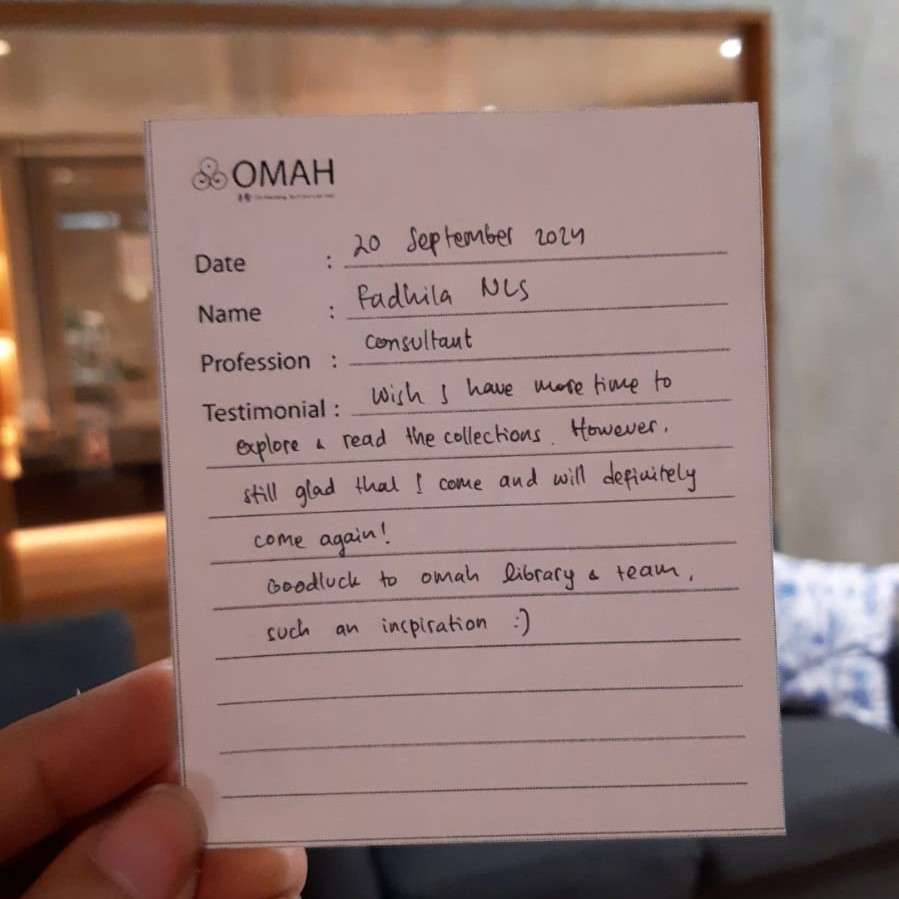 OMAH
Date : 20 September 2024
Name : Fadhila NLS
Profession : Consultant
Testimonial : Wish I have more time to
explore & read the collections. However,
still glad that I come and will definitely
come again!
Goodluck to omah library & team,
such an inspiration :)